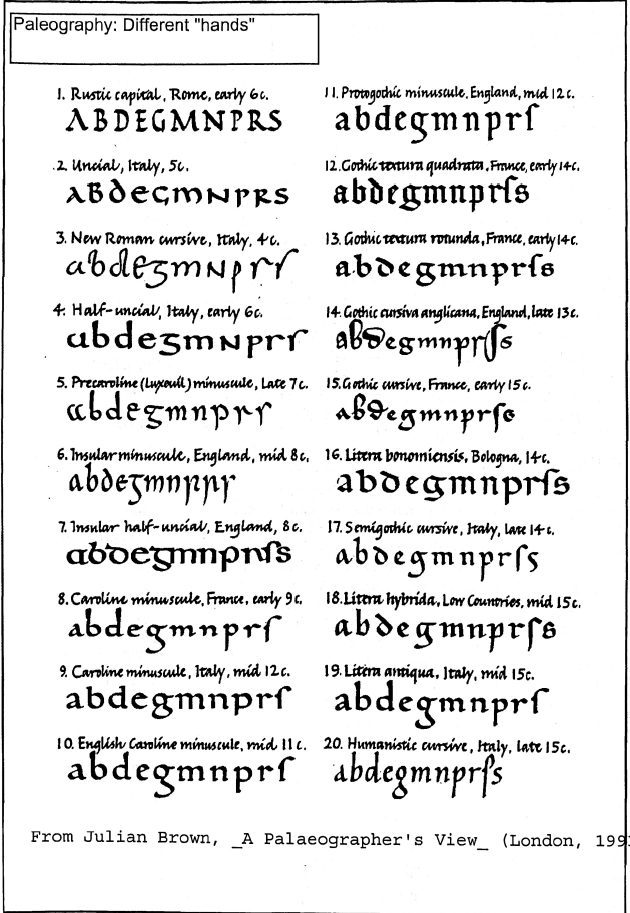 Paleography: Different "hands"
1. Rustic capital, Rome, early 6c.
ABDEGMNPRS
2. Uncial, Italy, 5c.
ABDEGMNPRS
3. New Roman cursive, Italy, 4c.
abdegmNprſ
4. Half-uncial, Italy, early 6c.
abdegmNprſ
5. Precaroline (Luxeuil) minuscule, Late 7c.
abdegmnprſ
6. Insular minuscule, England, mid 8c.
abdegmnprſ
7. Insular half-uncial, England, 8c.
abdegmnprſs
8. Caroline minuscule, France, early 9c.
abdegmnprſ
9. Caroline minuscule, Italy, mid 12c.
abdegmnprſ
10. English Caroline minuscule, mid 11c.
abdegmnprſ
11. Protogothic minuscule, England, mid 12c.
abdegmnprſ
12. Gothic textura quadrata, France, early 14c.
abdegmnprſs
13. Gothic textura rotunda, France, early 14c.
abdegmnprſs
14. Gothic cursiva anglicana, England, late 13c.
abdegmnprſs
15. Gothic cursive, France, early 15c.
abdegmnprſs
16. Littera bononiensis, Bologna, 14c.
abdegmnprſs
17. Semigothic cursive, Italy, late 14c.
abdegmnprſs
18. Littera hybrida, Low Countries, mid 15c.
abdegmnprſs
19. Littera antiqua, Italy, mid 15c.
abdegmnprſ
20. Humanistic cursive, Italy, late 15c.
abdegmnprſs
From Julian Brown, _A Palaeographer's View_ (London, 199